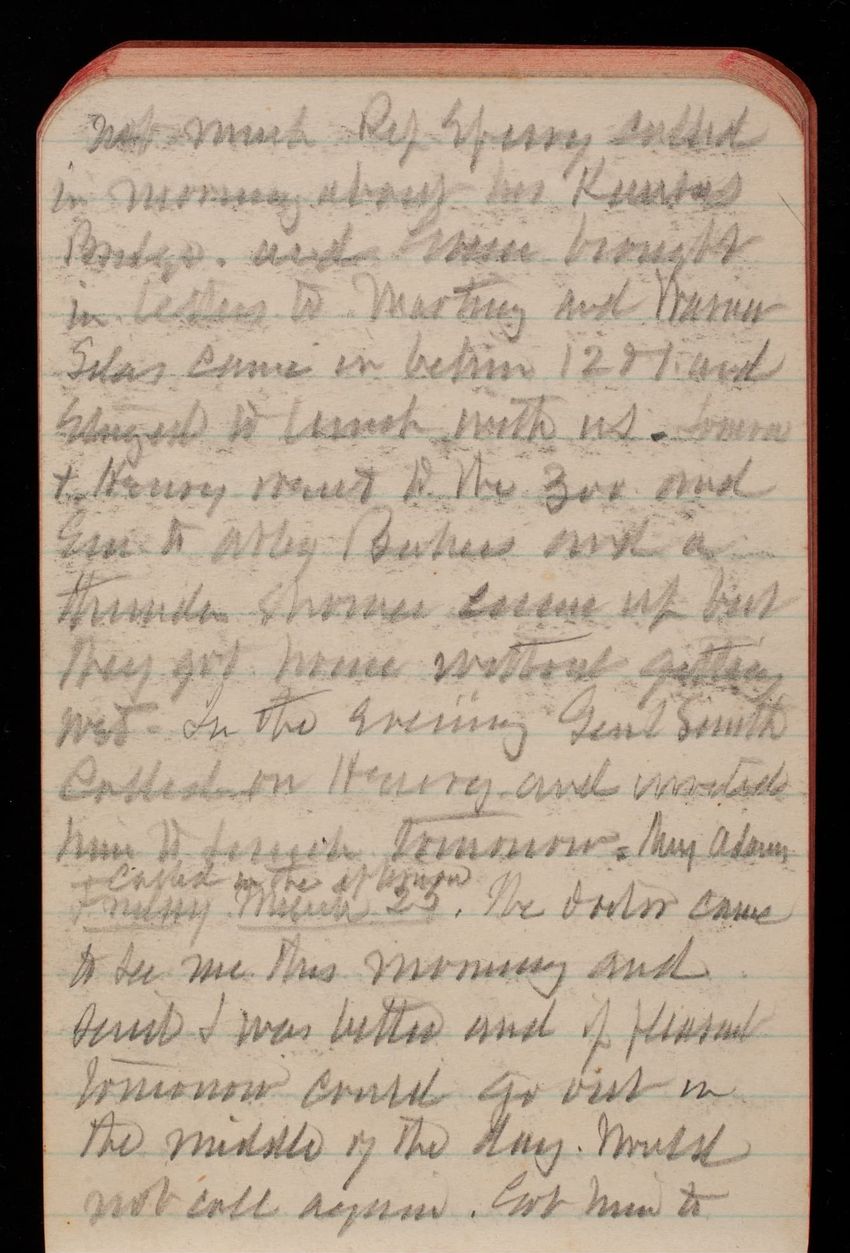 not much Rep Sperry called
in morning about his Kansas
Bridge. and Green brought
in letters to Mactay and Warner
Silas came in between 12 & 1 and
Stayed to lunch with us.
+ Henry went to the Zoo and
Em to and a
thunder shower came up but
they got home without getting
wet - In the evening Genl Smith
Called on Henry and invited
him to lunch tomorrow. Mrs Adams
Called in the afternoon
Friday March 25. The doctor came
to see me this morning and
said I was better and if pleasant
tomorrow could go out in
the middle of the day. Would
not call again. Got him to